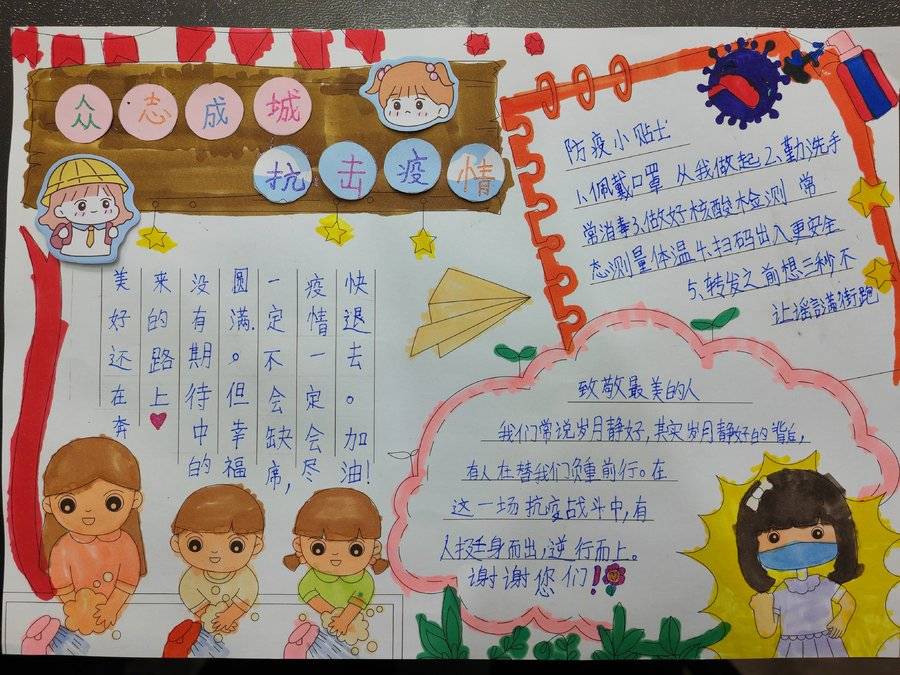 众志成城
抗击疫情
美好还在奔
来的路上
没有期待中的
圆满。但幸福
一定不会缺席,
疫情一定会尽
快退去。加油!
防疫小贴士
1、佩戴口罩 从我做起 2、勤洗手
常消毒 3、做好核酸检测 常
态测量体温 4、扫码出入更安全
5、转发之前想三秒不
让谣言满街跑
致敬最美的人
我们常说岁月静好,其实岁月静好的背后,
有人在替我们负重前行。在
这一场抗疫战斗中,有
人挺身而出,逆行而上。
谢谢您们!